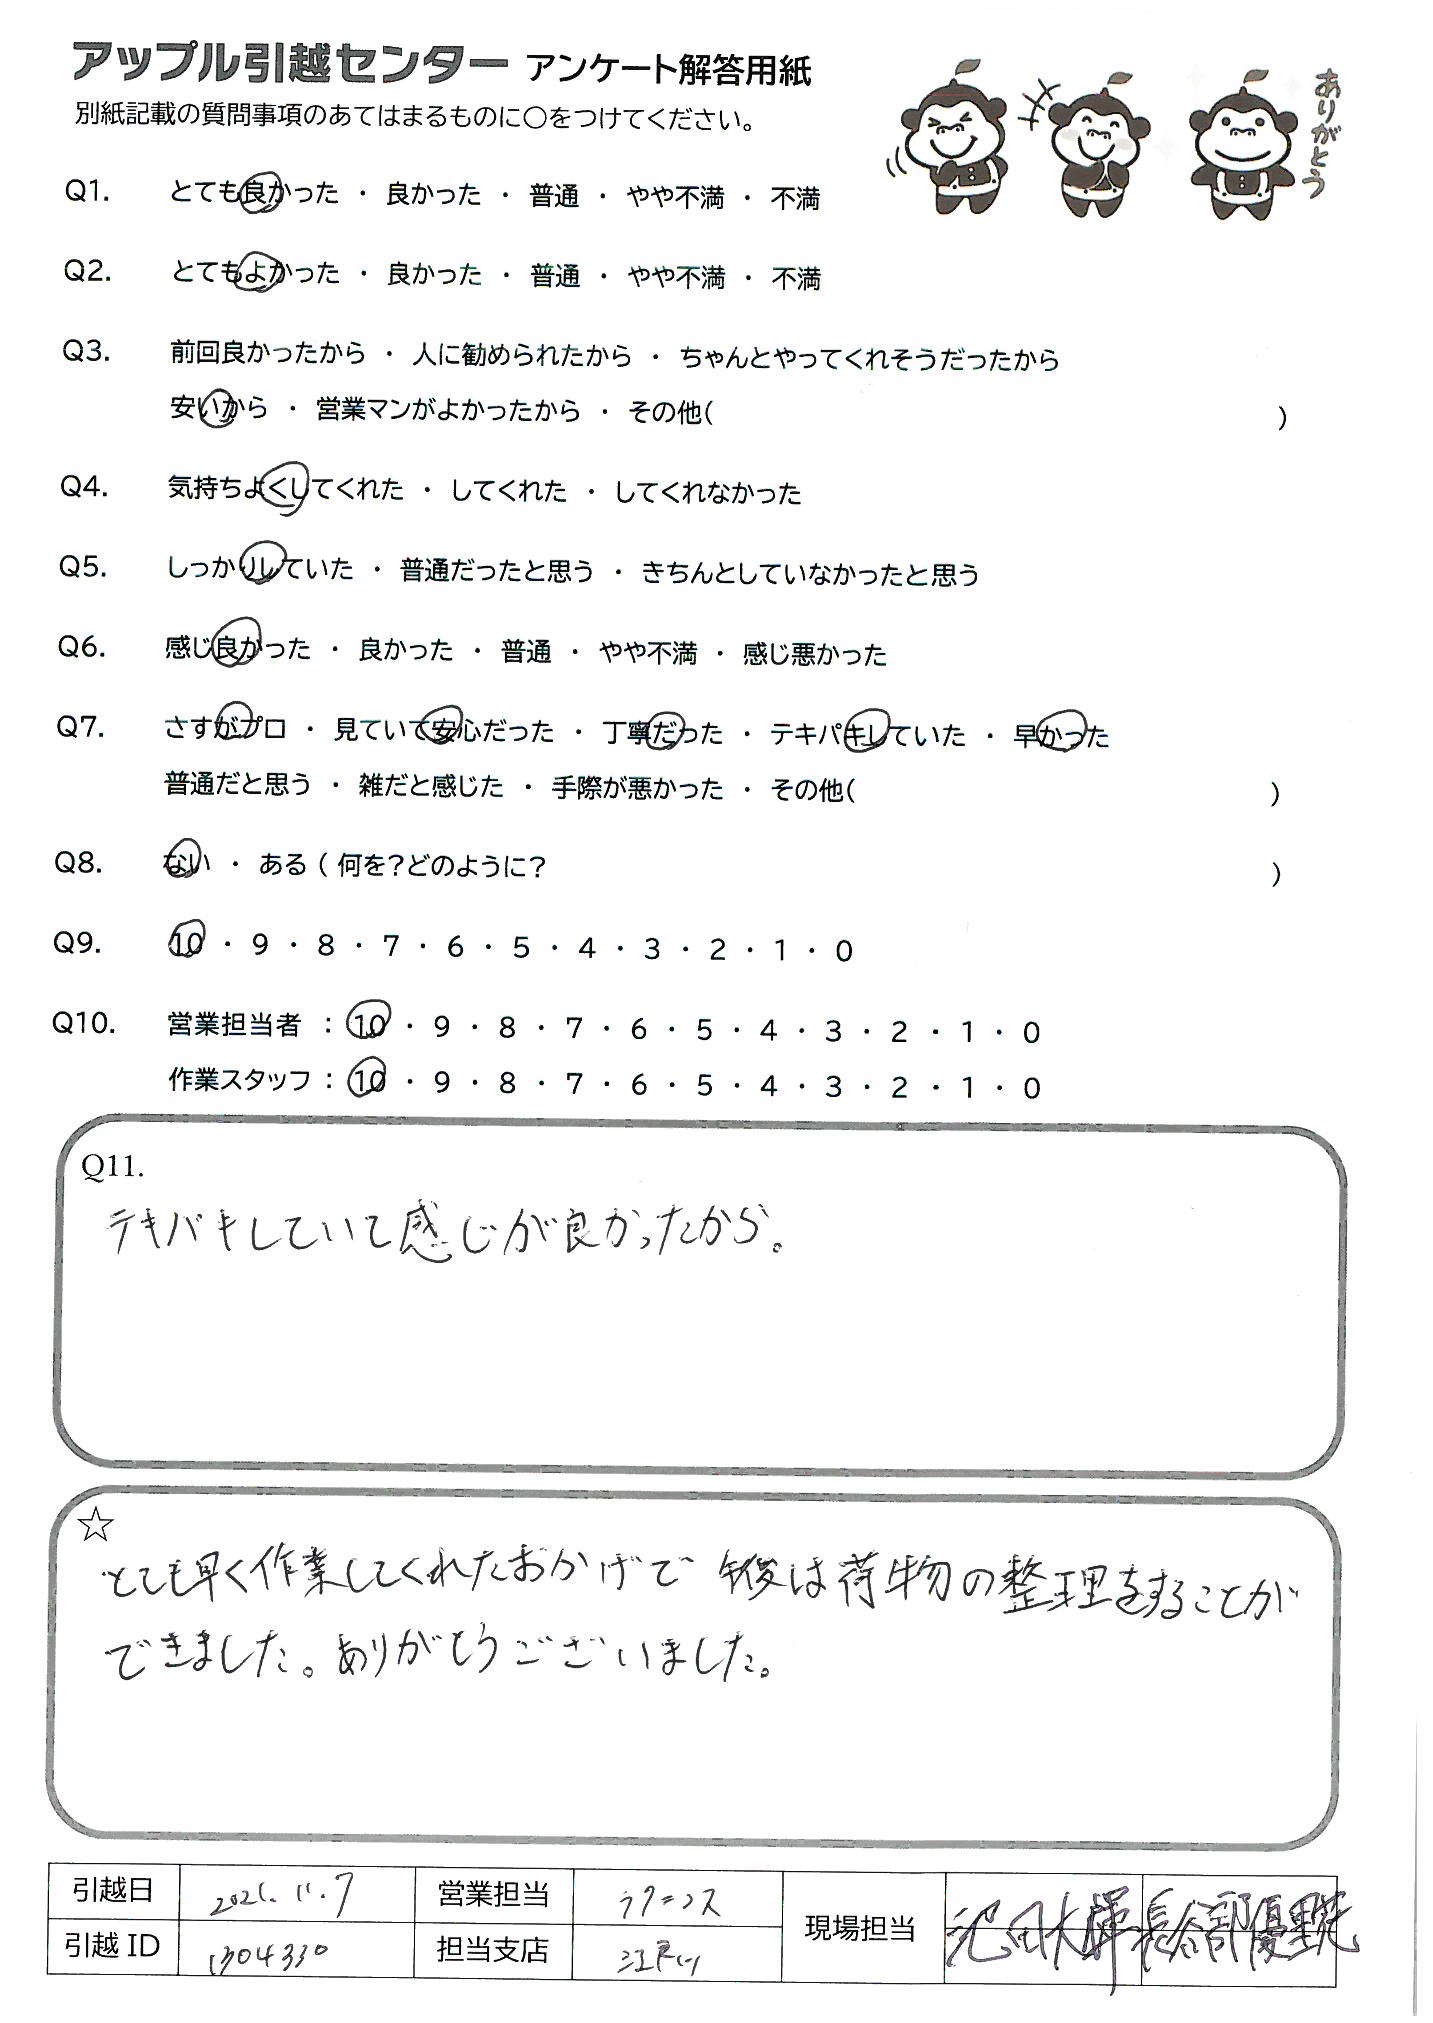 アップル引越センター アンケート解答用紙
別紙記載の質問事項のあてはまるものに○をつけてください。
ありがとう
Q1. とても良かった ・ 良かった ・ 普通 ・ やや不満 ・ 不満
Q2. とてもよかった ・ 良かった ・ 普通 ・ やや不満 ・ 不満
Q3. 前回良かったから ・ 人に勧められたから ・ ちゃんとやってくれそうだったから
安いから ・ 営業マンがよかったから ・ その他( )
Q4. 気持ちよくしてくれた ・ してくれた ・ してくれなかった
Q5. しっかりしていた ・ 普通だったと思う ・ きちんとしていなかったと思う
Q6. 感じ良かった ・ 良かった ・ 普通 ・ やや不満 ・ 感じ悪かった
Q7. さすがプロ ・ 見ていて安心だった ・ 丁寧だった ・ テキパキしていた ・ 早かった
普通だと思う ・ 雑だと感じた ・ 手際が悪かった ・ その他( )
Q8. ない ・ ある ( 何を?どのように? )
Q9. 10 ・ 9 ・ 8 ・ 7 ・ 6 ・ 5 ・ 4 ・ 3 ・ 2 ・ 1 ・ 0
Q10. 営業担当者 : 10 ・ 9 ・ 8 ・ 7 ・ 6 ・ 5 ・ 4 ・ 3 ・ 2 ・ 1 ・ 0
作業スタッフ : 10 ・ 9 ・ 8 ・ 7 ・ 6 ・ 5 ・ 4 ・ 3 ・ 2 ・ 1 ・ 0
Q11.
テキパキしていて感じが良かったから。
☆
とても早く作業してくれたおかげで 午後は荷物の整理をすることが
できました。ありがとうございました。
引越日 2021.11.7 営業担当 現場担当 池田大輝 長谷部優
引越 ID 1304330 担当支店